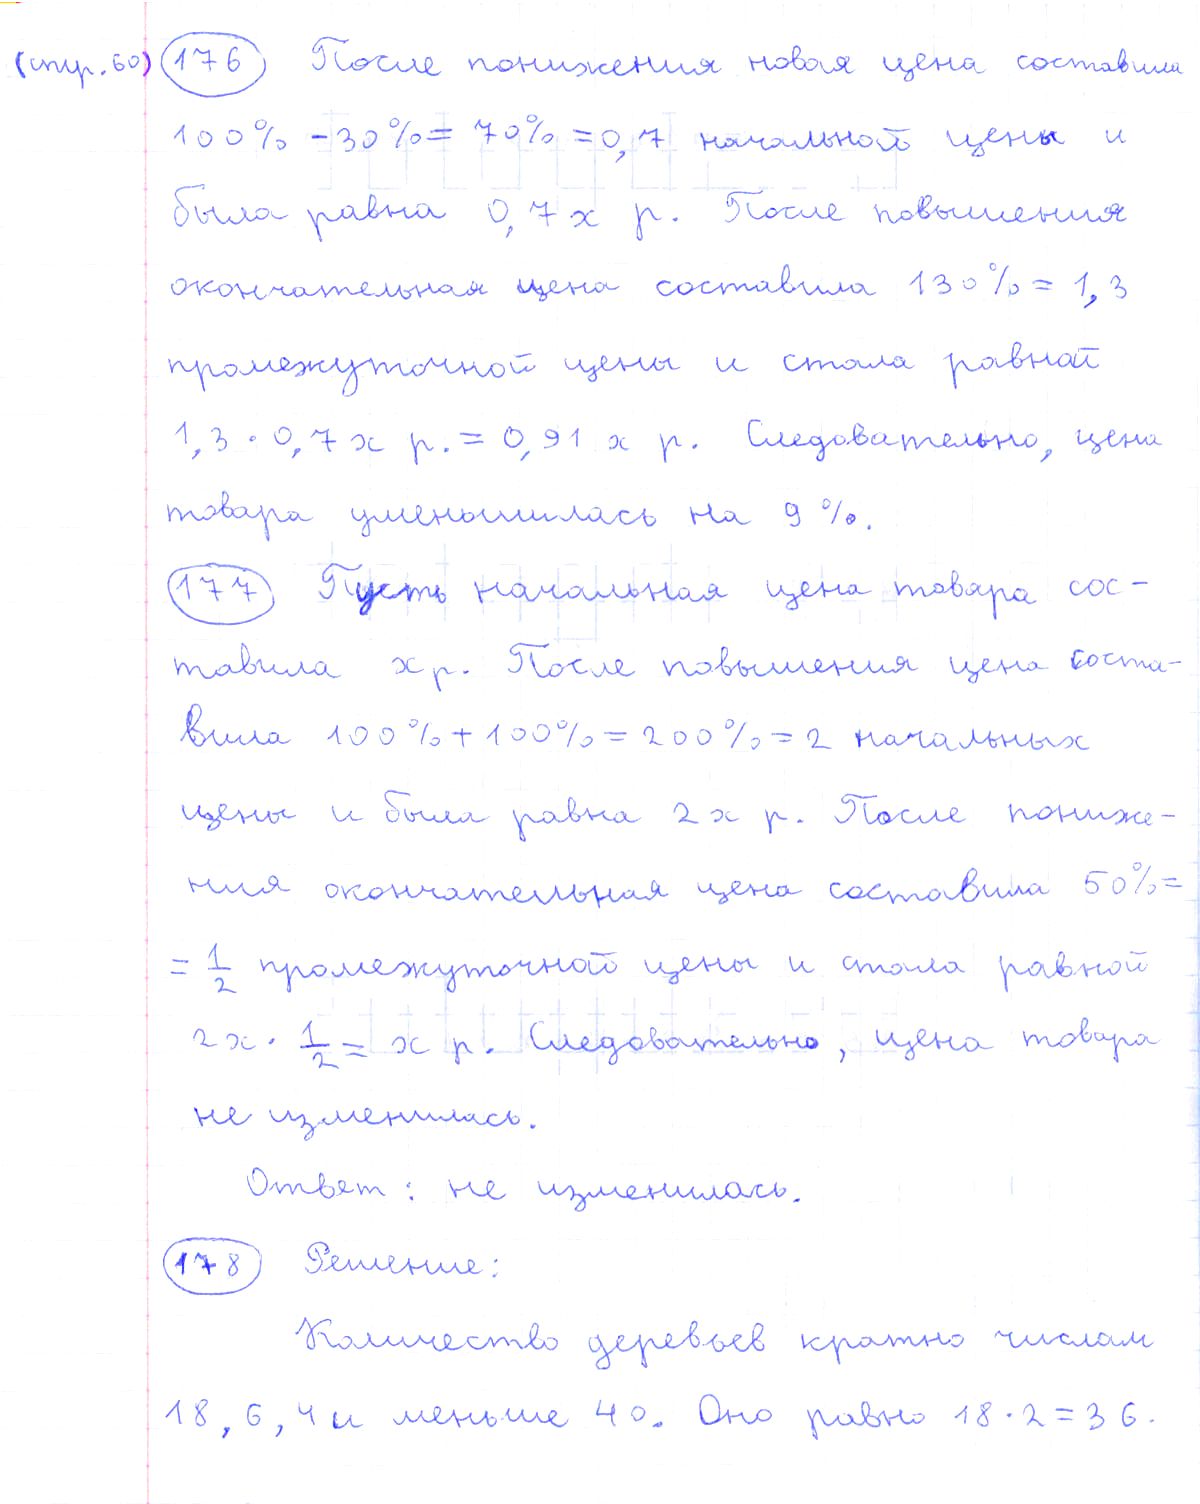 (стр. 60) 176 После понижения новая цена составила
100% - 30% = 70% = 0,7 начальной цены и
была равна 0,7x р. После повышения
окончательная цена составила 130% = 1,3
промежуточной цены и стала равной
1,3 · 0,7x р. = 0,91x р. Следовательно, цена
товара уменьшилась на 9%.
177 Пусть начальная цена товара сос-
тавила x р. После повышения цена соста-
вила 100% + 100% = 200% = 2 начальных
цены и была равна 2x р. После пониже-
ния окончательная цена составила 50% =
= 1/2 промежуточной цены и стала равной
2x · 1/2 = x р. Следовательно, цена товара
не изменилась.
Ответ: не изменилась.
178 Решение:
Количество деревьев кратно числам
18, 6, 4 и меньше 40. Оно равно 18 · 2 = 36.